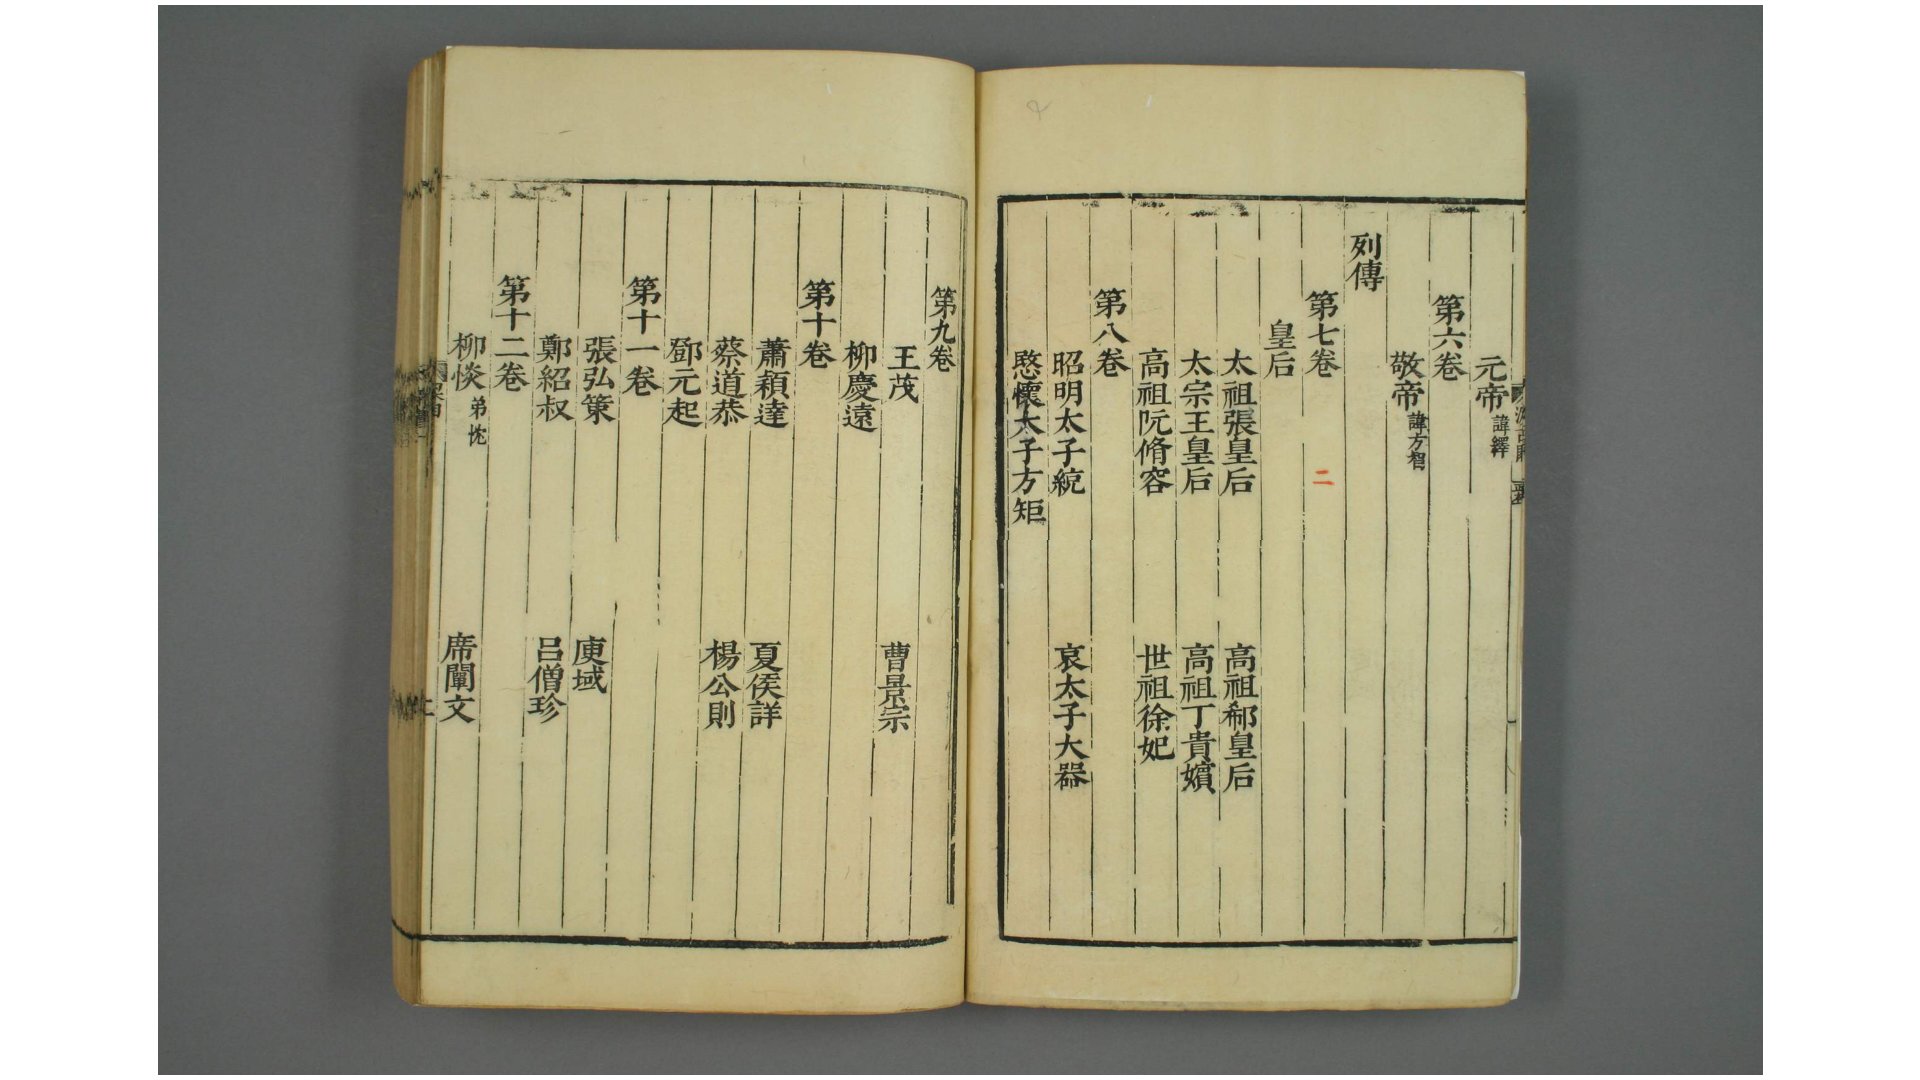 元帝 諱繹
第六卷
敬帝 諱方智
列傳
第七卷 二
皇后
太祖張皇后 高祖郗皇后
太宗王皇后 高祖丁貴嬪
高祖阮脩容 世祖徐妃
第八卷
昭明太子統 哀太子大器
愍懷太子方矩
第九卷
王茂 曹景宗
柳慶遠
第十卷
蕭穎達 夏侯詳
蔡道恭 楊公則
鄧元起
第十一卷
張弘策 庾域
鄭紹叔 呂僧珍
第十二卷
柳惔 弟忱 席闡文